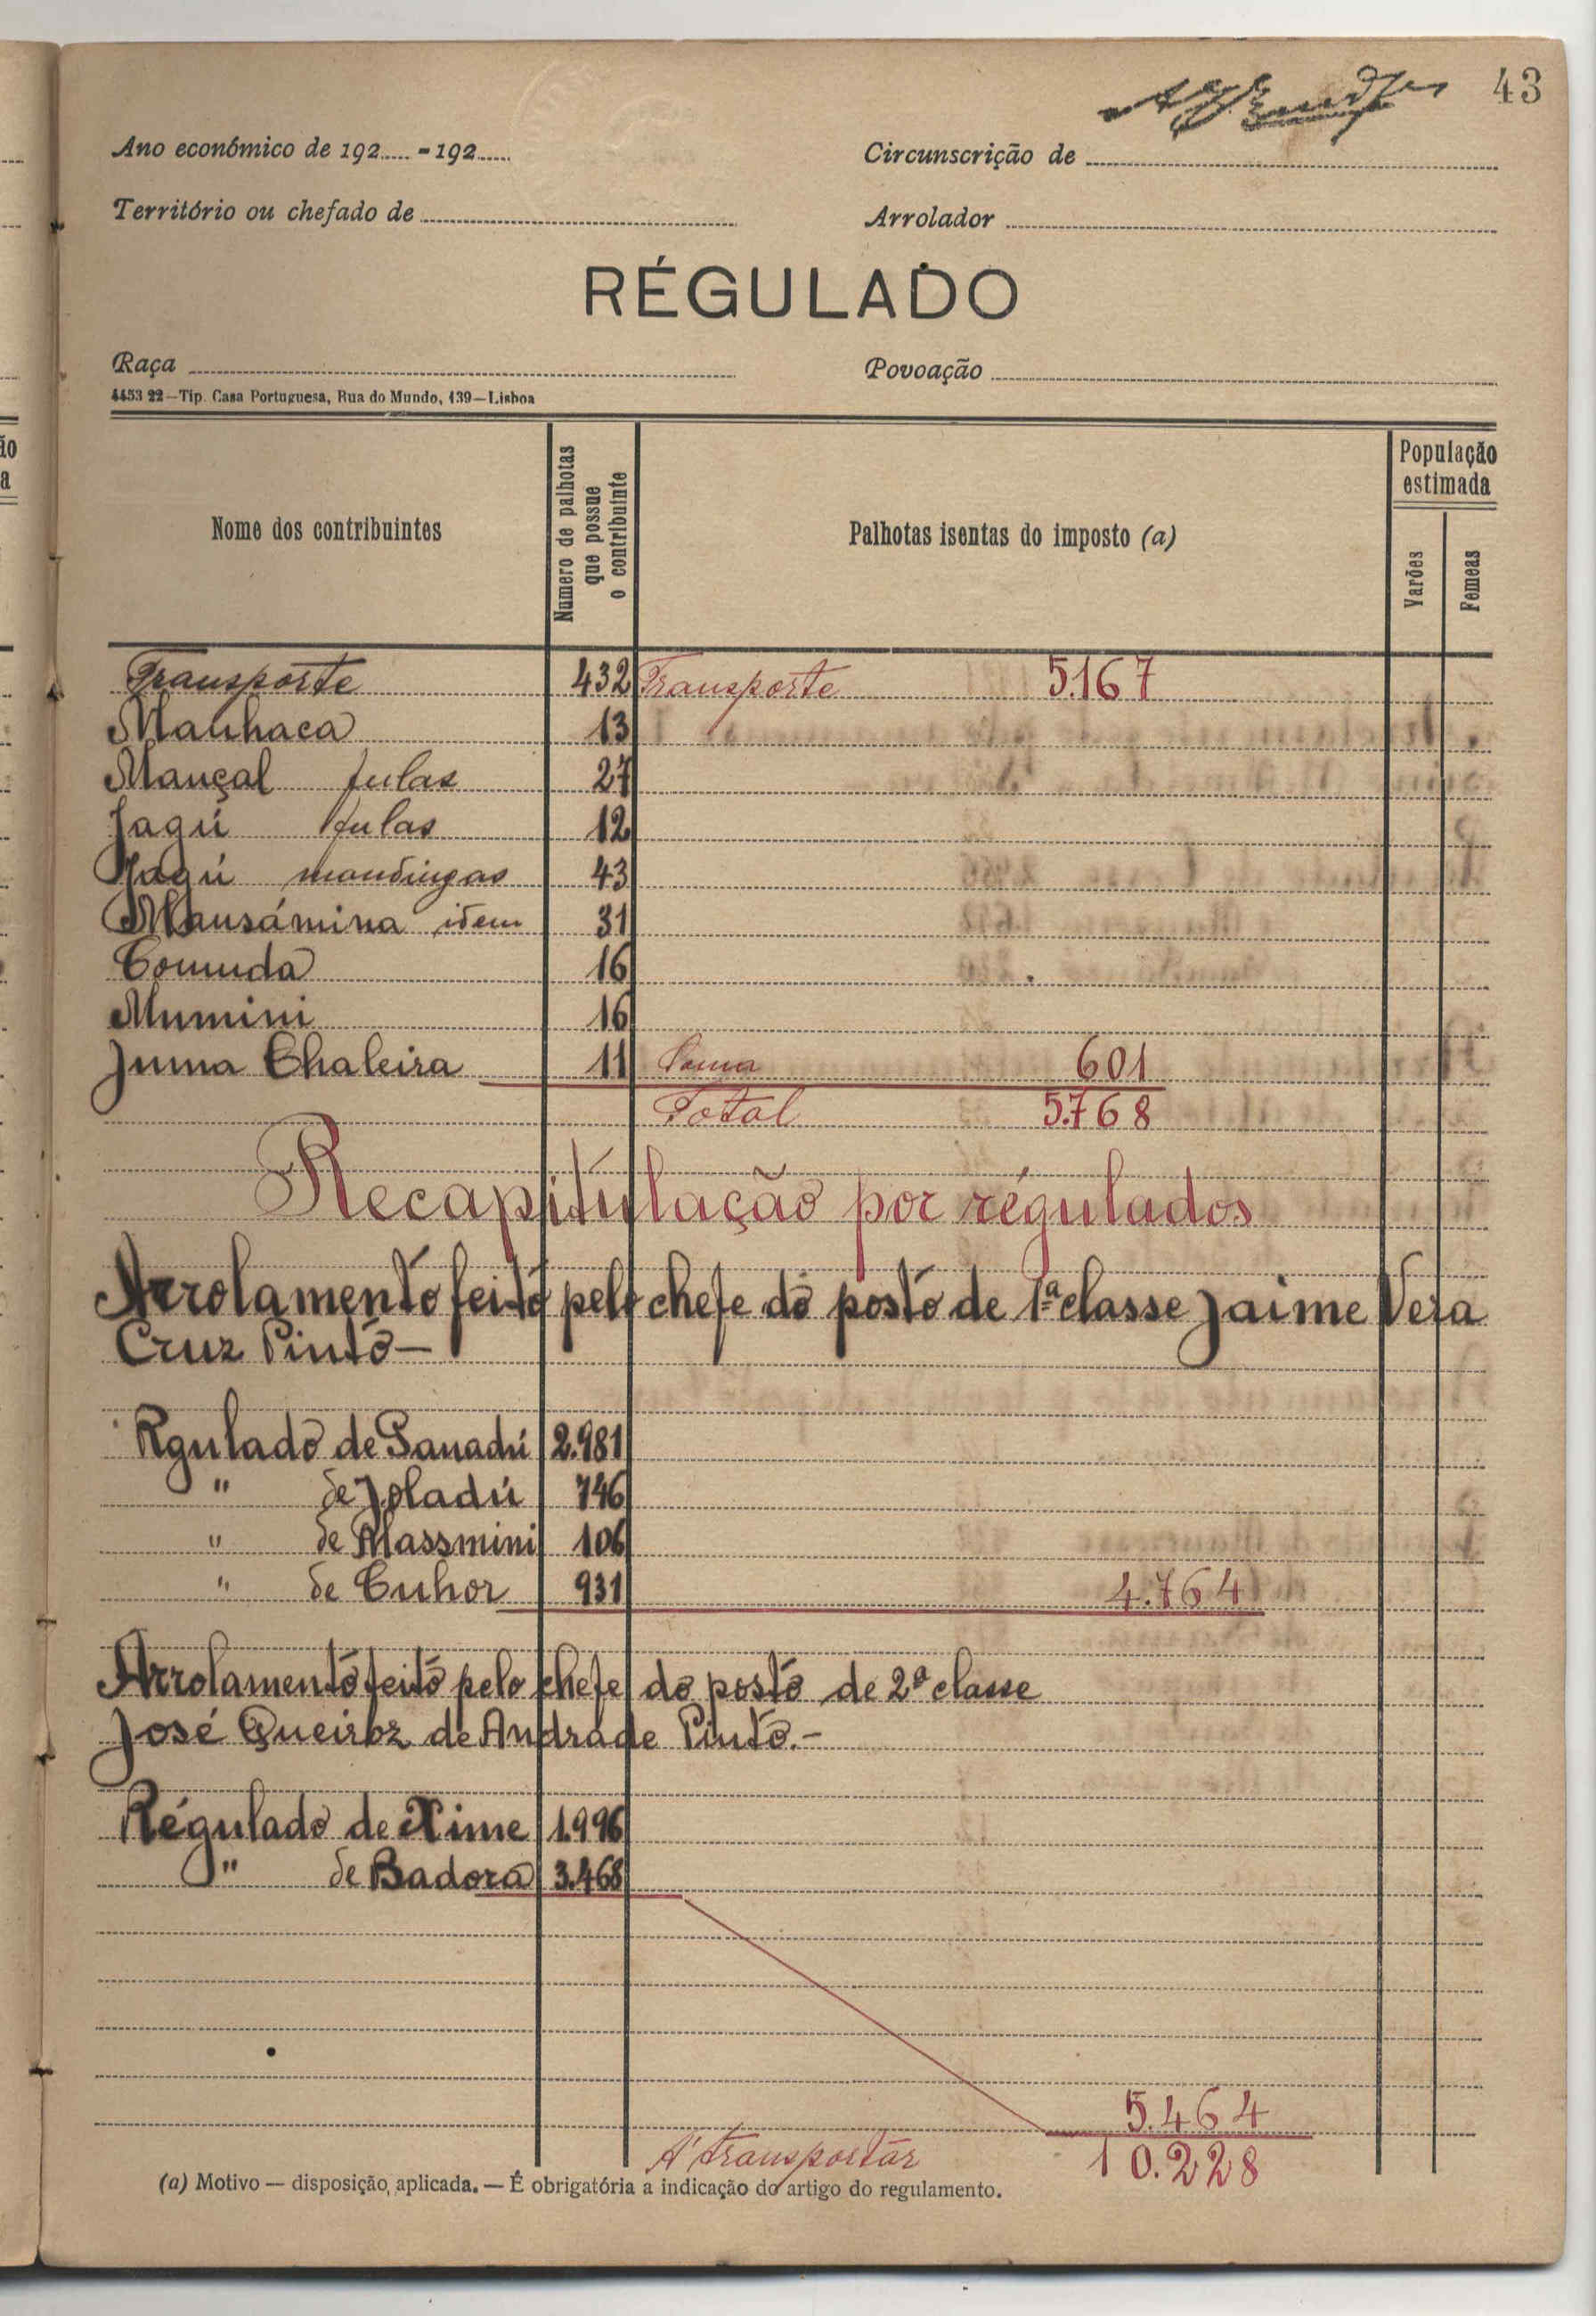 43
Ano económico de 192..... - 192......
Circunscrição de
Território ou chefado de
Arrolador
RÉGULADO
Raça
Povoação
4453 22—Tip. Casa Portuguesa, Rua do Mundo, 139—Lisboa
Nome dos contribuintes
Numero de palhotas que possue o contribuinte
Palhotas isentas do imposto (a)
População estimada
Varões
Femeas
Transporte 432 Transporte 5.167
Manhaca 13
Mançal fulas 27
Jagú fulas 12
Jagú mandingas 43
Mansámina idem 31
Comuda 16
Mumini 16
Juma Chaleira 11 Soma 601
Total 5.768
Recapitulação por régulados
Arrolamento feito pelo chefe do posto de 1ª classe Jaime Vera
Cruz Pinto—
Rgulado de Sanadú 2.981
" de Joladú 746
" de Massmini 106
" de Cuhor 931 4.764
Arrolamento feito pelo chefe do posto de 2ª classe
José Queiroz de Andrade Pinto.—
Régulado de Xime 1.996
" de Badora 3.468
5.464
A transportar 10.228
(a) Motivo — disposição aplicada. — É obrigatória a indicação do artigo do regulamento.